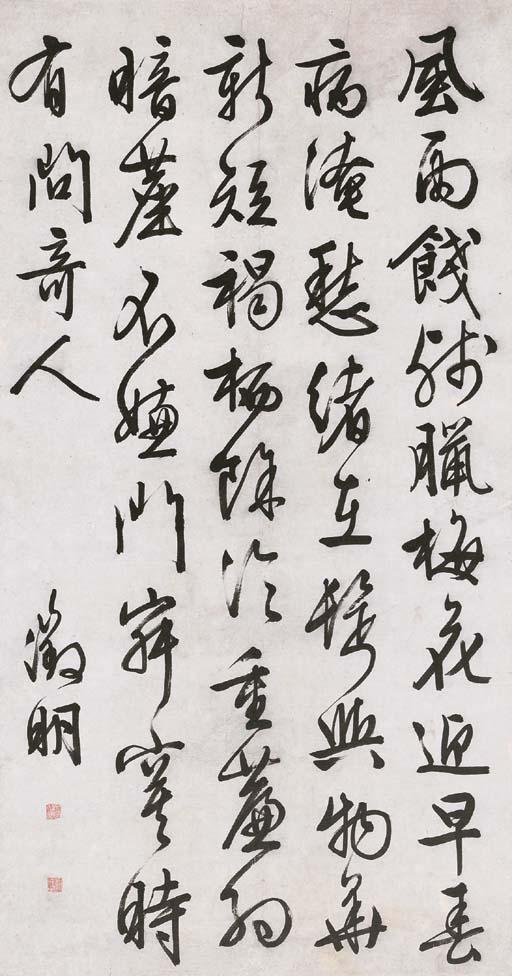 風雨餞殘臘梅花迎早春
病淹愁緒在髮與物華
新短褐栖餘冷重簾網
暗塵不嫌門寂寞時
有問奇人
徵明